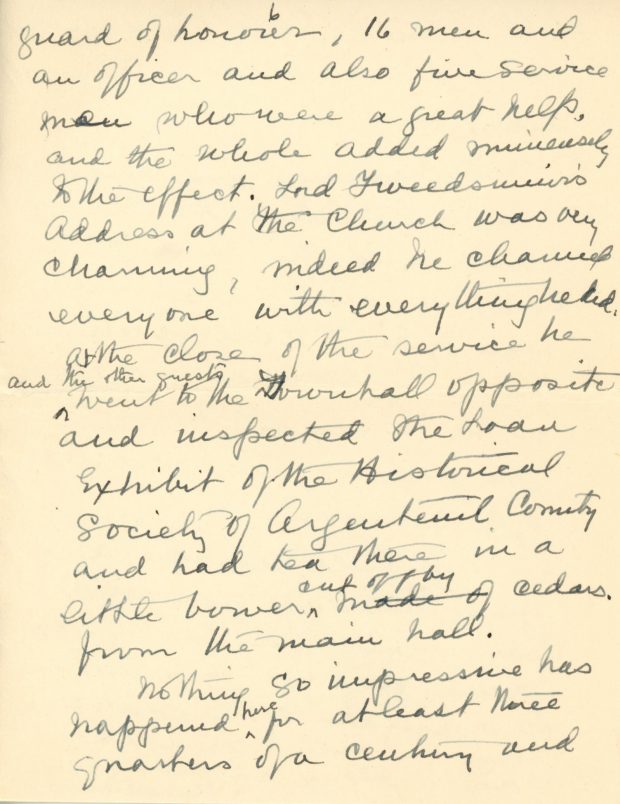 guard of honour, 16 men and
an officer and also five service
men who were a great help,
and the whole added immensely
to the effect. Lord Tweedsmuir's
Address at the Church was very
charming, indeed he charmed
everyone with everything he did.
at the close of the service he
and the other guests
went to the Townhall opposite
and inspected the Loan
Exhibit of the Historical
Society of Argenteuil County
and had tea there in a
cut off by
little bower, made of cedars.
from the main hall.
Nothing so impressive has
happened here for at least three
quarters of a century and